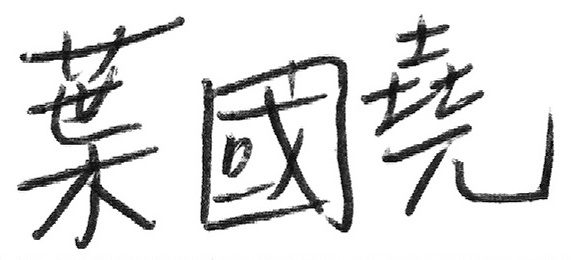 葉國堯